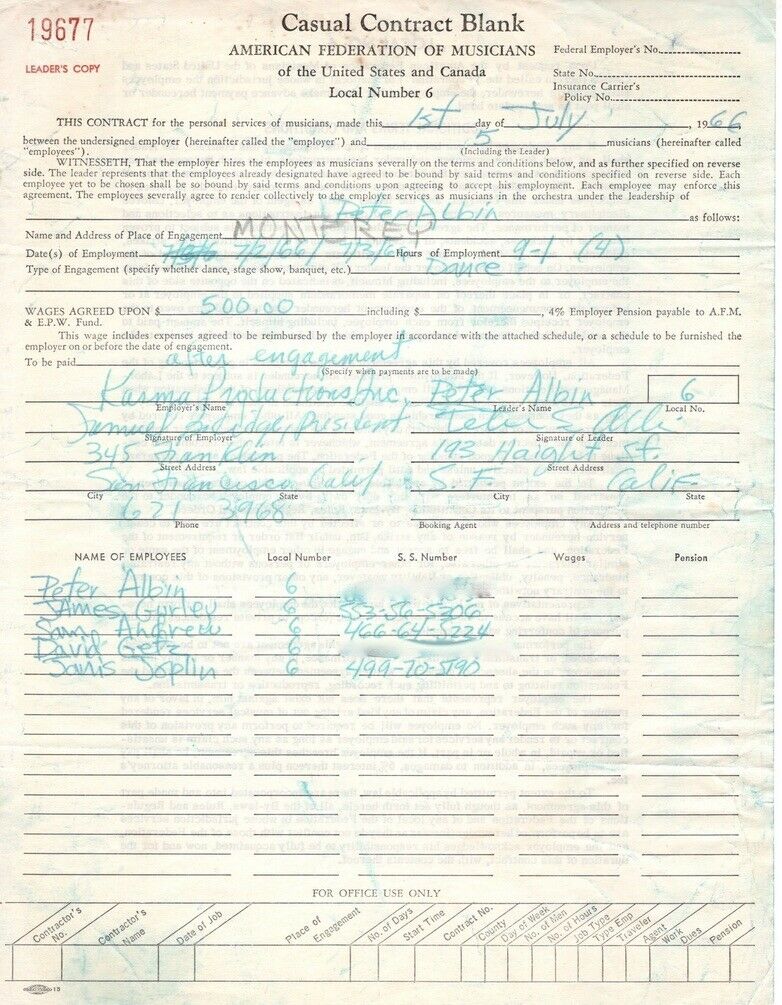 19677
LEADER'S COPY
Casual Contract Blank
AMERICAN FEDERATION OF MUSICIANS
of the United States and Canada
Local Number 6
Federal Employer's No.
State No.
Insurance Carrier's
Policy No.
THIS CONTRACT for the personal services of musicians, made this 1st day of July, 1966,
between the undersigned employer (hereinafter called the "employer") and 5 musicians (hereinafter called
"employees"). (Including the Leader)
WITNESSETH, That the employer hires the employees as musicians severally on the terms and conditions below, and as further specified on reverse
side. The leader represents that the employees already designated have agreed to be bound by said terms and conditions specified on reverse side. Each
employee yet to be chosen shall be so bound by said terms and conditions upon agreeing to accept his employment. Each employee may enforce this
agreement. The employees severally agree to render collectively to the employer services as musicians in the orchestra under the leadership of
Peter Albin as follows:
Name and Address of Place of Engagement MONTEREY
Date(s) of Employment 7/2/66, 7/3/66 Hours of Employment 9-1 (4)
Type of Engagement (specify whether dance, stage show, banquet, etc.) Dance
WAGES AGREED UPON $ 500.00 including $ , 4% Employer Pension payable to A.F.M.
& E.P.W. Fund.
This wage includes expenses agreed to be reimbursed by the employer in accordance with the attached schedule, or a schedule to be furnished the
employer on or before the date of engagement.
To be paid after engagement
(Specify when payments are to be made)
Karma Productions Inc. Peter Albin 6
Employer's Name Leader's Name Local No.
Samuel President Peter S. Albin
Signature of Employer Signature of Leader
345 Franklin 193 Haight St.
Street Address Street Address
San Francisco Calif S.F. Calif
City State City State
621 3968
Phone Booking Agent Address and telephone number
NAME OF EMPLOYEES Local Number S. S. Number Wages Pension
Peter Albin 6
James Gurley 6
Sam Andrew 6 466-64-5224
David Getz 6
Janis Joplin 6
FOR OFFICE USE ONLY
Contractor's No. Contractor's Name Date of Job Place of Engagement No. of Days Start Time Contract No. County Day of Week No. of Men No. of Hours Job Type Type Emp Traveler Agent Work Dues Pension
13